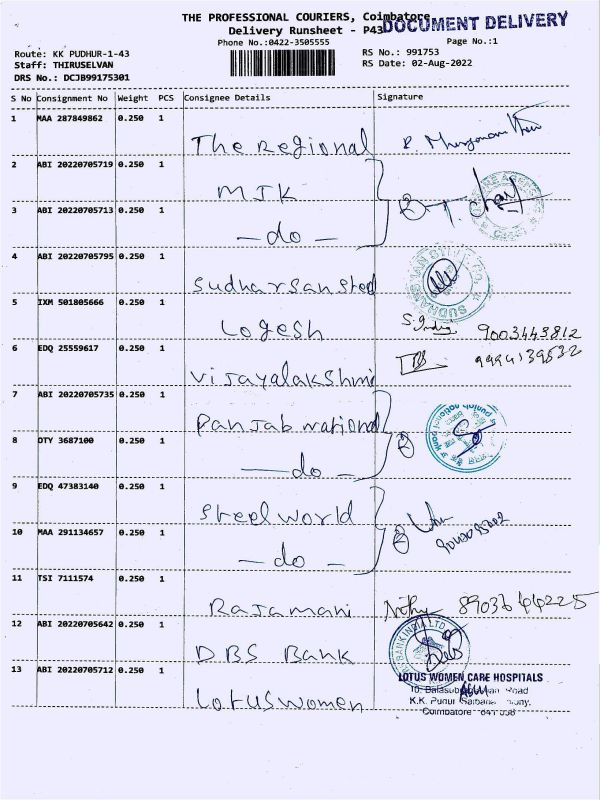 THE PROFESSIONAL COURIERS, Coimbatore
DOCUMENT DELIVERY
Delivery Runsheet - P43
Phone No.:0422-3505555
Page No.:1
Route: KK PUDHUR-1-43
RS No.: 991753
Staff: THIRUSELVAN
RS Date: 02-Aug-2022
DRS No.: DCJB99175301
S No Consignment No Weight PCS Consignee Details Signature
1 MAA 287849862 0.250 1
The Regional
2 ABI 20220705719 0.250 1
MJK
3 ABI 20220705713 0.250 1
- do -
4 ABI 20220705795 0.250 1
Sudharsan steel
5 IXM 501805666 0.250 1
Logesh 9003443812
6 EDQ 25559617 0.250 1
Vijayalakshmi
7 ABI 20220705735 0.250 1
Panjab national
8 OTY 3687100 0.250 1
- do -
9 EDQ 47383140 0.250 1
Steel world
10 MAA 291134657 0.250 1
- do -
11 TSI 7111574 0.250 1
Rajamani
12 ABI 20220705642 0.250 1
DBS Bank
13 ABI 20220705712 0.250 1
LOTUS WOMEN CARE HOSPITALS
Lotus women
Coimbatore